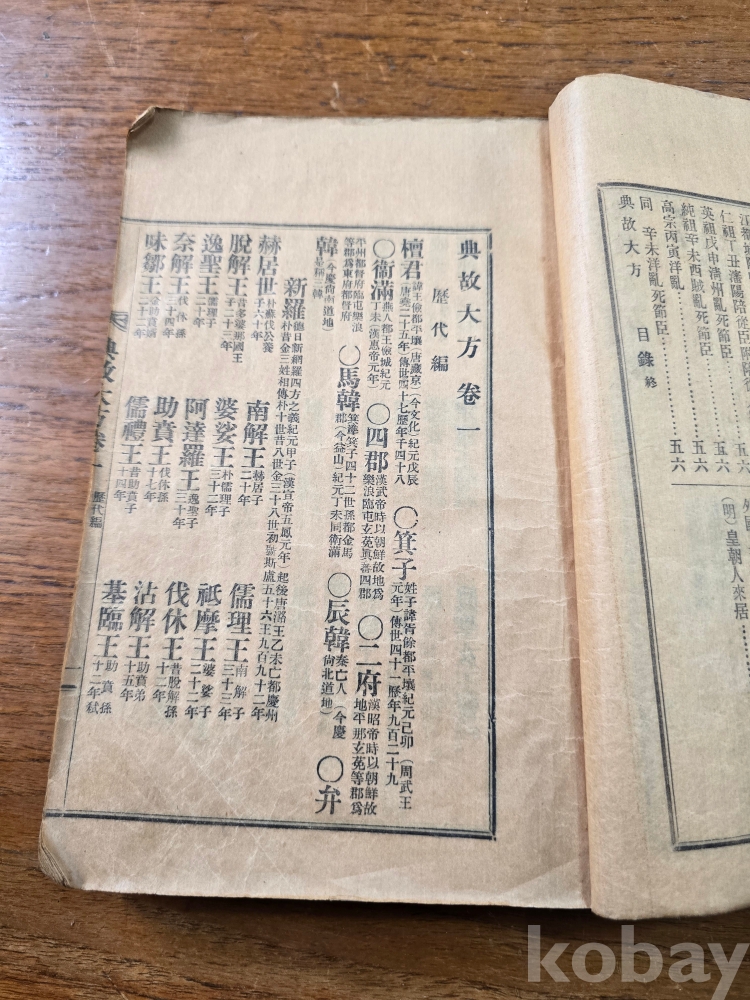 仁祖丁丑瀋陽陪從臣
英祖戊申淸州亂死節臣……五六
純祖辛未西賊亂死節臣……五六
高宗丙寅洋亂死節臣……五六
同 辛未洋亂死節臣……五六
典故大方 目錄 終
(明)皇朝人來居
典故大方卷一
歷代編
檀君 諱王儉都平壤(唐藏京)(今文化)紀元戊辰(唐堯二十五年)傳世四十七歷年千四十八 ○箕子 姓子諱胥餘都平壤紀元己卯(周武王元年)傳世四十一歷年九百二十九
○衞滿 燕人都王儉城紀元丁未(漢惠帝元年) ○四郡 漢武帝時以朝鮮故地爲樂浪臨屯玄菟眞番四郡 ○二府 漢昭帝時以朝鮮故地平那玄菟等郡爲
平州都督府臨屯樂浪等郡爲東府都督府 ○馬韓 箕準箕子四十二世孫都金馬郡(今益山)紀元丁未同衞滿 ○辰韓 秦亡人(今慶尙北道地) ○弁
韓 (今慶尙南道地)是稱三韓
新羅 德日新網羅四方之義紀元甲子(漢宣帝五鳳元年)起後唐潞王乙未亡都慶州朴昔金三姓相傳朴十世昔八世金三十八世初號斯盧五十六王九百九十二年
赫居世 朴蘇伐公養子六十年 南解王 赫居子二十年 儒理王 南解子三十三年
脫解王 昔多婆那國王子二十三年 婆娑王 朴儒理子三十二年 祗摩王 婆娑子二十二年
逸聖王 儒理子二十年 阿達羅王 逸聖子三十年 伐休王 昔脫解孫十二年
奈解王 伐休孫三十四年 助賁王 伐休孫十七年 沾解王 助賁弟十五年
味鄒王 金助賁婿二十二年 儒禮王 昔助賁子十四年 基臨王 助賁孫十二年弒
典故大方卷一 歷代編 一
kobay